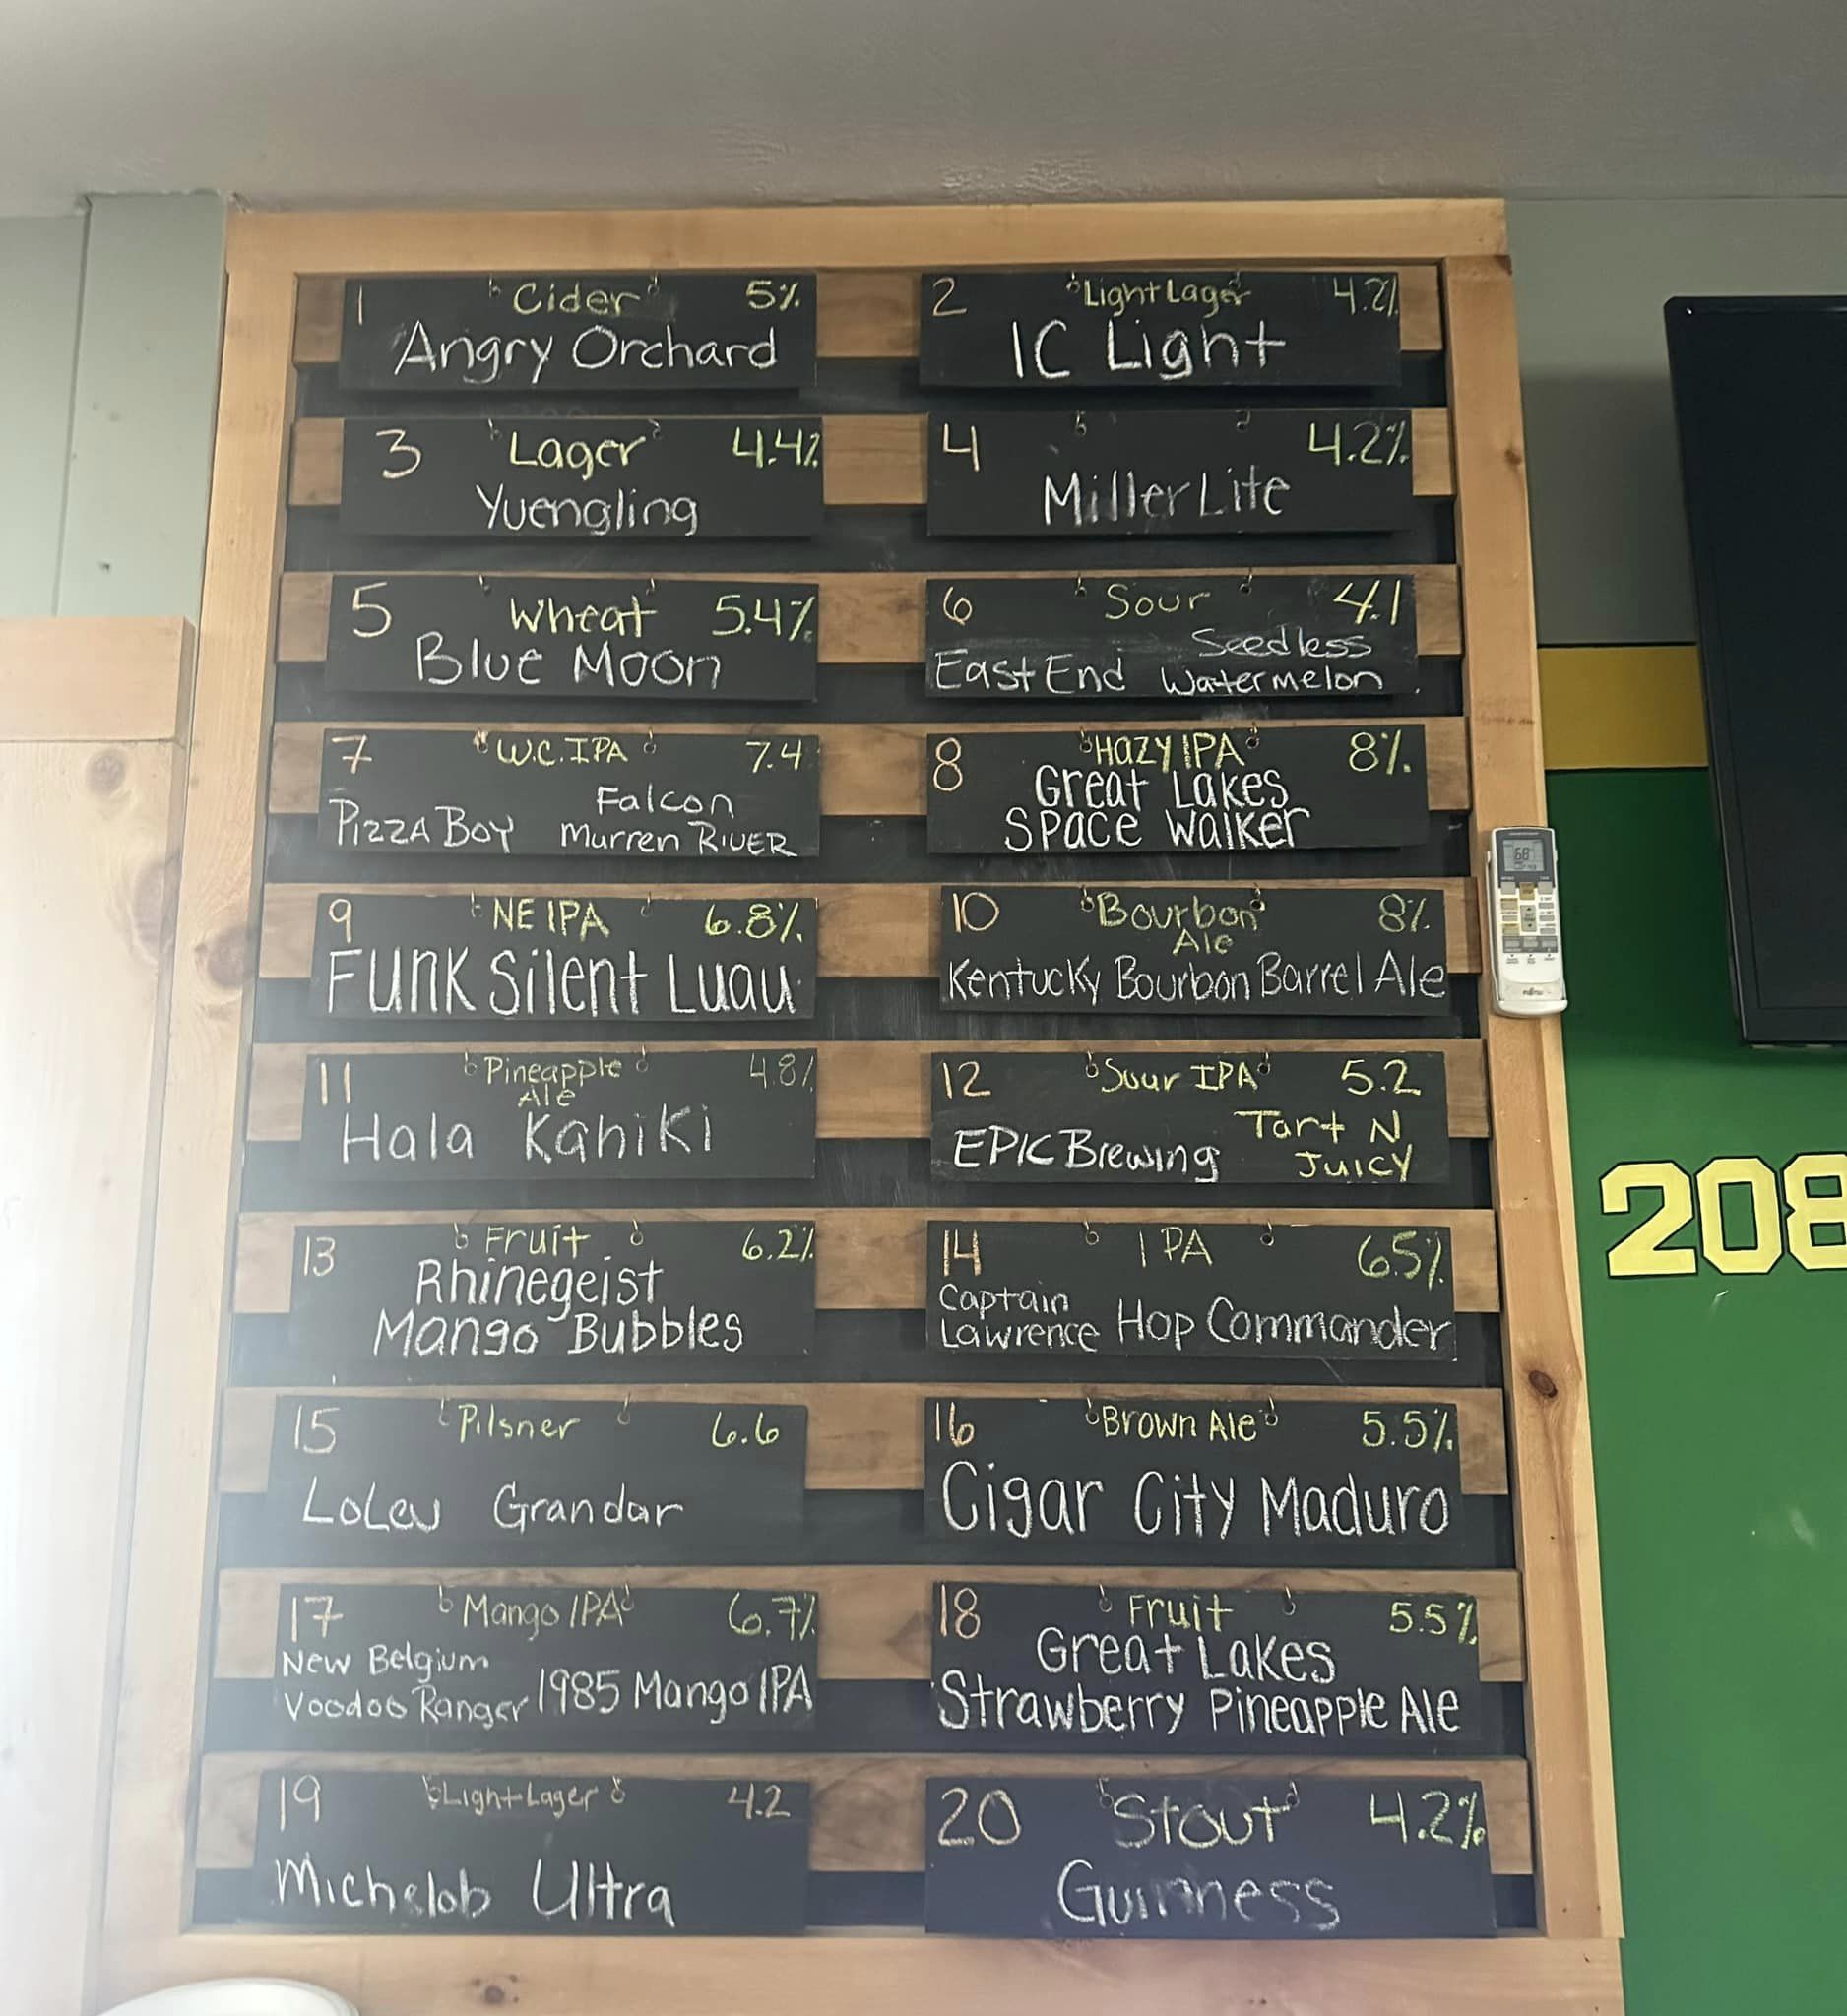 1 Cider 5%
Angry Orchard
2 Light Lager 4.2%
IC Light
3 Lager 4.4%
Yuengling
4 4.2%
Miller Lite
5 Wheat 5.4%
Blue Moon
6 Sour 4.1
Seedless
East End Watermelon
7 W.C. IPA 7.4
Falcon
Pizza Boy Murren River
8 Hazy IPA 8%
Great Lakes
Space Walker
9 NE IPA 6.8%
Funk Silent Luau
10 Bourbon 8%
Ale
Kentucky Bourbon Barrel Ale
11 Pineapple 4.8%
Ale
Hala Kahiki
12 Sour IPA 5.2
Tart N
EPIC Brewing Juicy
13 Fruit 6.2%
Rhinegeist
Mango Bubbles
14 IPA 6.5%
Captain
Lawrence Hop Commander
15 Pilsner 6.6
LoLev Grandar
16 Brown Ale 5.5%
Cigar City Maduro
17 Mango IPA 6.7%
New Belgium
Voodoo Ranger 1985 Mango IPA
18 Fruit 5.5%
Great Lakes
Strawberry Pineapple Ale
19 Light Lager 4.2
Michelob Ultra
20 Stout 4.2%
Guinness
68
208